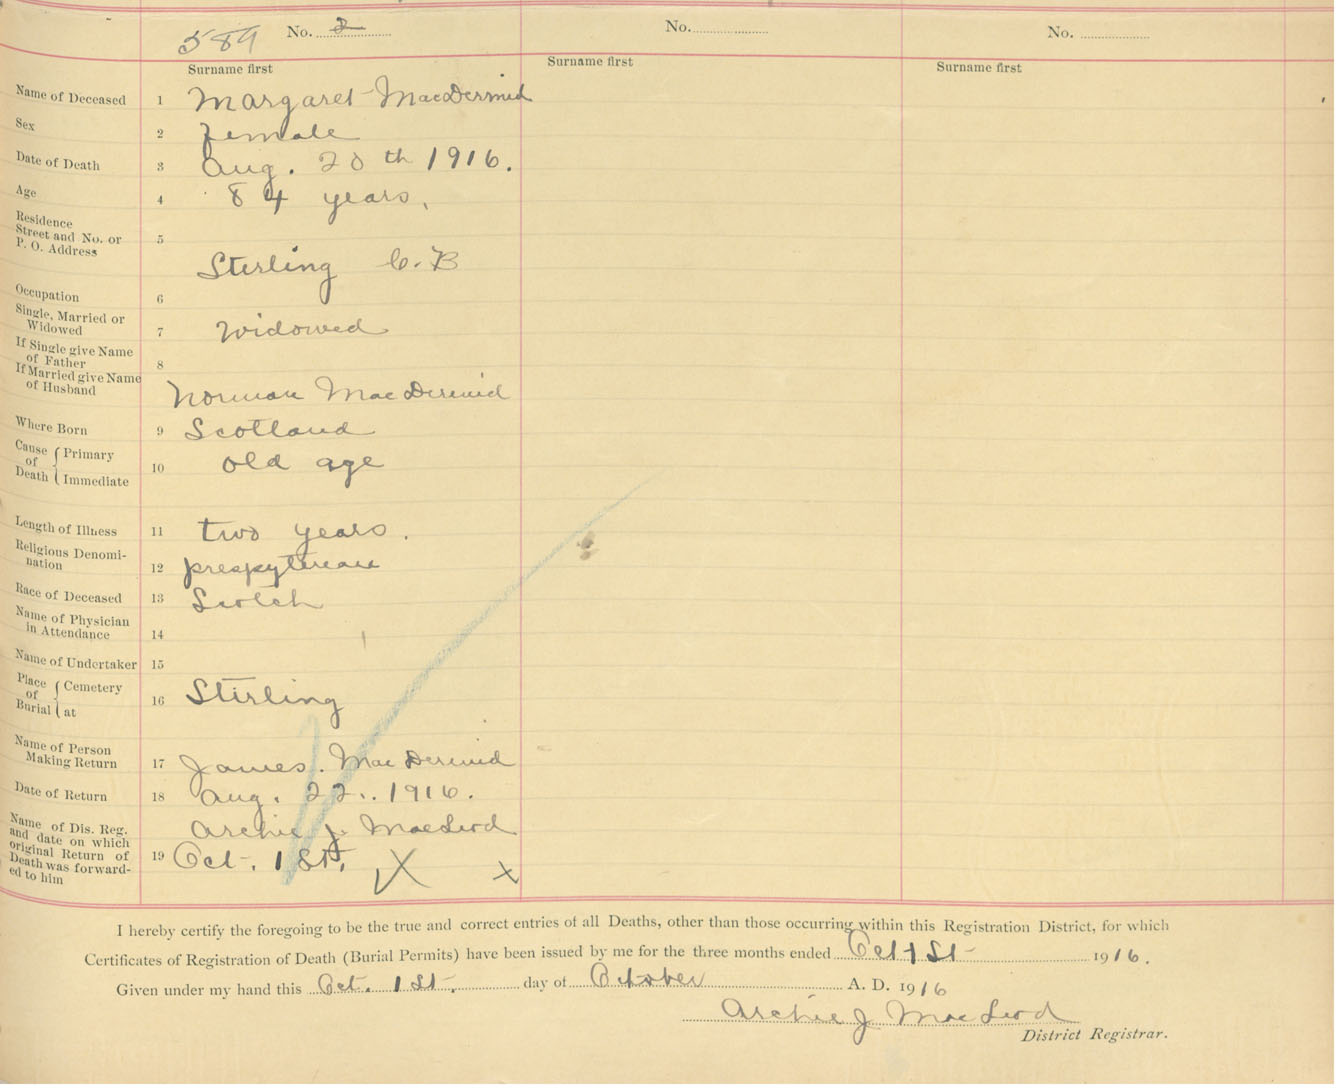 589 No. 2 No. No.
Surname first Surname first Surname first
Name of Deceased 1 Margaret MacDermid
Sex 2 female
Date of Death 3 Aug. 20th 1916.
Age 4 84 years,
Residence
Street and No. or 5
P. O. Address
Sterling C.B
Occupation 6
Single, Married or
Widowed 7 Widowed
If Single give Name
of Father 8
If Married give Name
of Husband Norman MacDermid
Where Born 9 Scotland
Cause of Death { Primary 10 old age
Immediate
Length of Illness 11 two years.
Religious Denomi-
nation 12 prespyterean
Race of Deceased 13 Scotch
Name of Physician
in Attendance 14
Name of Undertaker 15
Place of Burial { Cemetery 16 Stirling
at
Name of Person
Making Return 17 James. MacDermid
Date of Return 18 Aug. 22.. 1916.
Name of Dis. Reg. Archie J. MacLeod
and date on which
original Return of 19 Oct. 1 St.
Death was forward-
ed to him X x
I hereby certify the foregoing to be the true and correct entries of all Deaths, other than those occurring within this Registration District, for which
Certificates of Registration of Death (Burial Permits) have been issued by me for the three months ended Oct 1 St 1916.
Given under my hand this Oct. 1 St. day of October A. D. 1916
Archie J MacLeod
District Registrar.